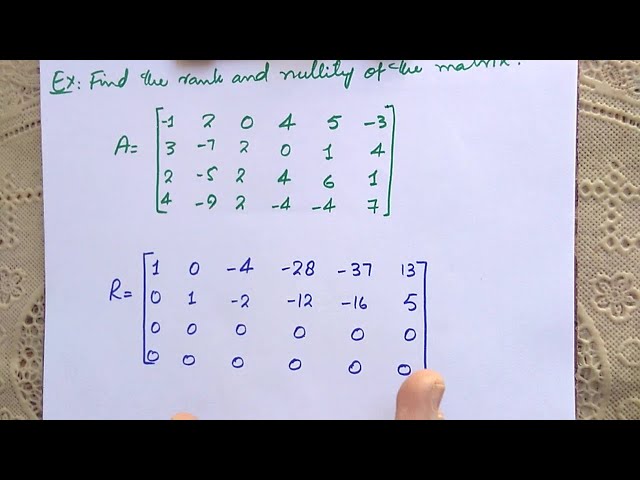 Ex: Find the rank and nullity of the matrix.
-1 2 0 4 5 -3
A= 3 -7 2 0 1 4
2 -5 2 4 6 1
4 -9 2 -4 -4 7
1 0 -4 -28 -37 13
R= 0 1 -2 -12 -16 5
0 0 0 0 0 0
0 0 0 0 0 0